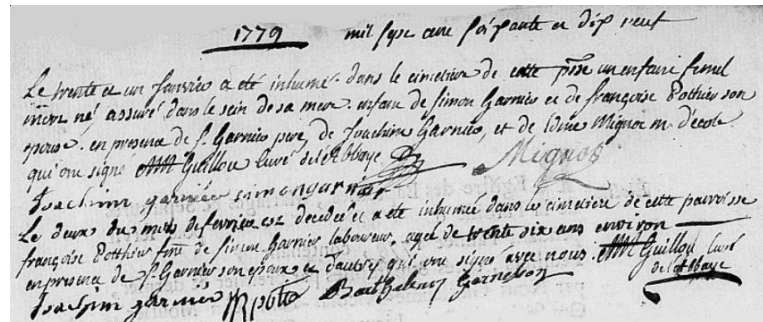 1779 mil sept cent soixante et dix neuf
Le trente et un janvier a été inhumé dans le cimetiere de cette psse un enfant femel
mort né assuré dans le sein de sa mere. enfant de simon Garnier et de françoise Pothier son
epouse. en presence de S. Garnier pere, de Joachim Garnier, et de Mignot m. d'ecole.
qui ont signé Guillou curé de l'abbaye Mignot
Joachim garnier simon garnier
Le deux du mois de fevrier est decedée et a été inhumée dans le cimetiere de cette parroisse
françoise Potthier fme de simon Garnier laboureur, agée de trente six ans environ
en presence de S. Garnier son epoux et d'autres qui ont signé avec nous. Guillou curé
de l'abbaye
Joachim garnier Potie Barthelemy Garneron